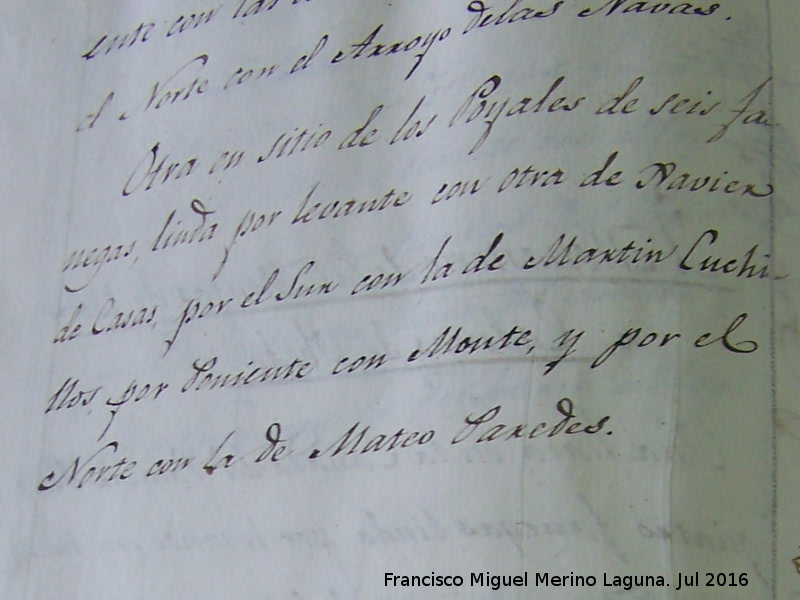 ente con
el Norte con el Arroyo de las Navas.
Otra en sitio de los Poyales de seis fa-
negas, linda por levante con otra de Navier
de Casas, por el Sur con la de Martin Cuchi-
llos, por Poniente con Monte, y por el
Norte con la de Mateo Paredes.
Francisco Miguel Merino Laguna. Jul 2016